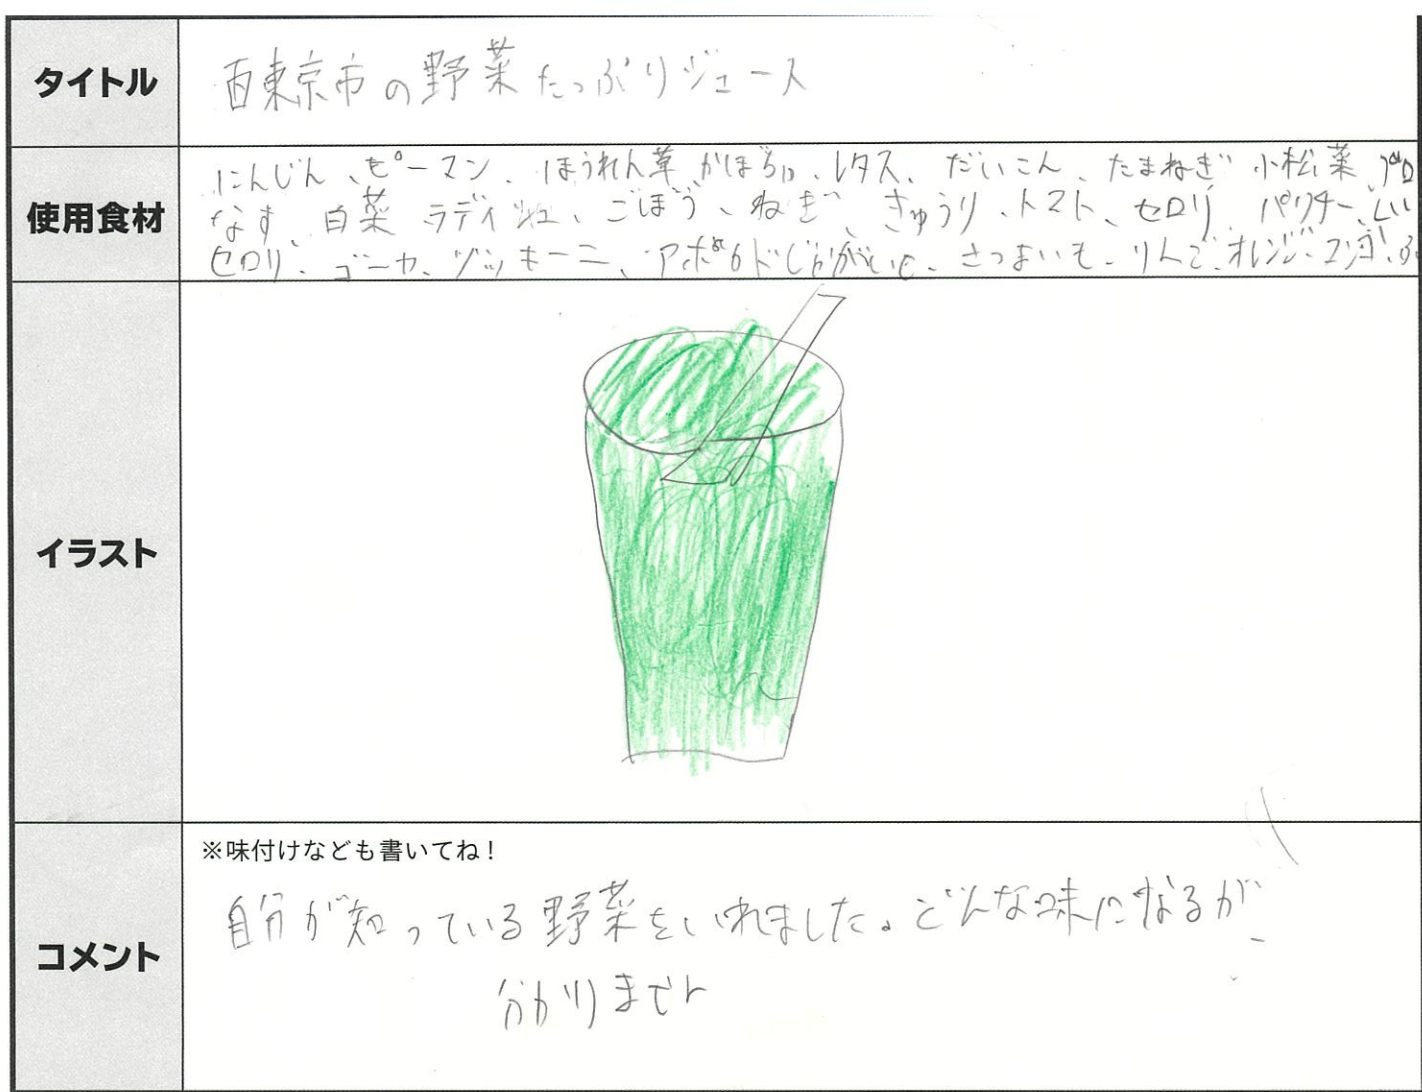 タイトル
西東京市の野菜たっぷりジュース
使用食材
にんじん、ピーマン、ほうれん草、かぼちゃ、レタス、だいこん、たまねぎ 小松菜
なす、白菜 ラディシュ、ごぼう、ねぎ、きゅうり、トマト、セロリ パクチー
セロリ、ゴーヤ、ズッキーニ、アボカド じゃがいも、さつまいも、りんご、オレンジ、マンゴー
イラスト
コメント
※味付けなども書いてね！
自分が知っている野菜をいれました。どんな味になるか
分かりません